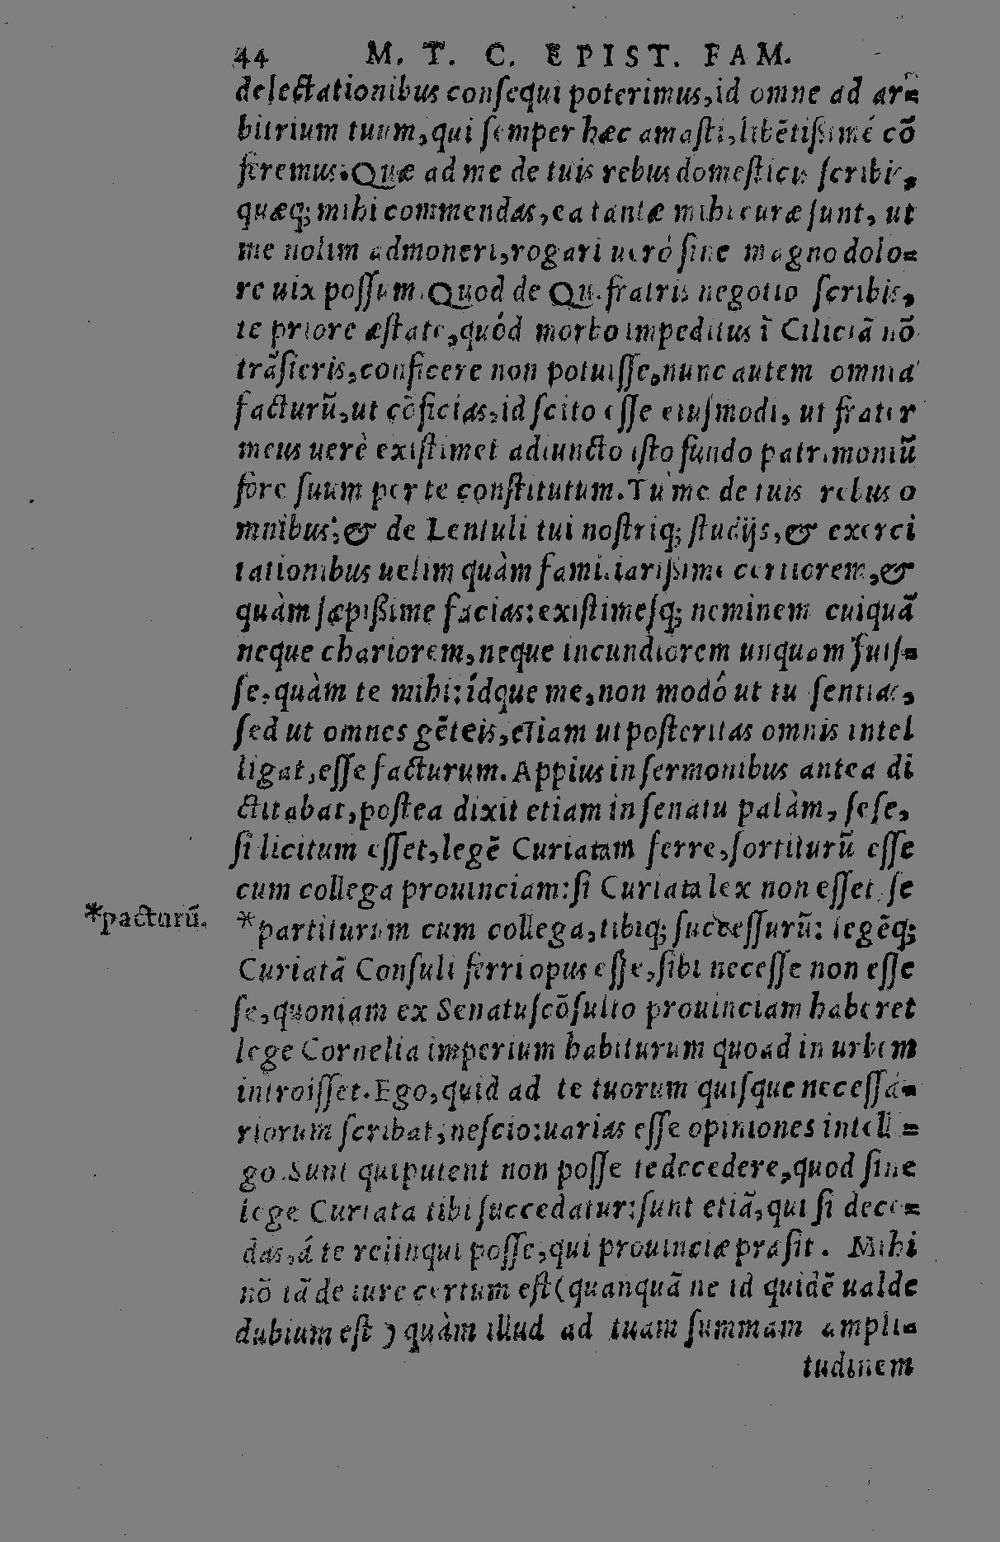 44 M. T. C. EPIST. FAM.
delectationibus conſequi poterimus, id omne ad ar=
bitrium tuum, qui ſemper hæc amaſti, libētiſſimé cō
feremus. Quæ ad me de tuis rebus domeſticis ſcribis,
quæq; mihi commendas, ea tantæ mihi curæ ſunt, ut
me nolim admoneri, rogari ueró ſine magno dolo=
re uix poſſum. Quod de Qu. fratris negotio ſcribis,
te priore æſtate, quód morbo impeditus ī Ciliciā nō
trāſieris, conficere non potuiſſe, nunc autem omnia
facturū, ut cōficias, id ſcito eſſe eiuſmodi, ut frater
meus uerè exiſtimet adiuncto iſto fundo patrimoniū
fore ſuum per te conſtitutum. Tu me de tuis rebus o
mnibus, & de Lentuli tui noſtriq; ſtudijs, & exerci
tationibus uelim quàm familiariſſime certiorem, &
quàm ſæpiſſime facias: exiſtimeſq; neminem cuiquā
neque chariorem, neque iucundiorem unquam fuiſ=
ſe, quàm te mihi: ídque me, non modó ut tu ſentias,
ſed ut omnes gēteis, etiam ut poſteritas omnis intel
ligat, eſſe facturum. Appius in ſermonibus antea di
ctitabat, poſtea dixit etiam in ſenatu palàm, ſeſe,
ſi licitum eſſet, legē Curiatam ferre, ſortiturū eſſe
cum collega prouinciam: ſi Curiata lex non eſſet, ſe
*pacturū.
*partiturum cum collega, tibiq; ſucceſſurū: legēq;
Curiatā Conſuli ferri opus eſſe, ſibi neceſſe non eſſe
ſe, quoniam ex Senatuſcōſulto prouinciam haberet
lege Cornelia imperium habiturum quoad in urbem
introiſſet. Ego, quid ad te tuorum quiſque neceſſa=
riorum ſcribat, neſcio: uarias eſſe opiniones intelli=
go. Sunt qui putent non poſſe te decedere, quod ſine
lege Curiata tibi ſuccedatur: ſunt etiā, qui ſi dece=
das, á te relinqui poſſe, qui prouinciæ præſit. Mihi
nō tā de iure certum eſt (quanquā ne id quidē ualde
dubium eſt) quàm illud ad tuam ſummam ampli=
tudinem